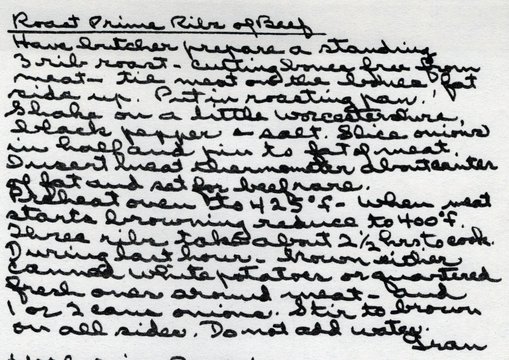 Roast Prime Ribs of Beef
Have butcher prepare a standing
3 rib roast - cutting bones free from
meat - tie meat on the bones, fat
side up. Put in roasting pan.
Shake on a little worcestershire,
black pepper & salt. Slice onions
in half and pin to fat of meat.
Insert meat thermometer about center
of fat and set for beef rare.
Preheat oven to 425°f - when meat
starts browning reduce to 400°f.
Three ribs take about 2½ hrs to cook.
During last hour - brown either
canned white potatoes or quartered
fresh ones around meat - and
1 or 2 cans onions. Stir to brown
on all sides. Do not add water.